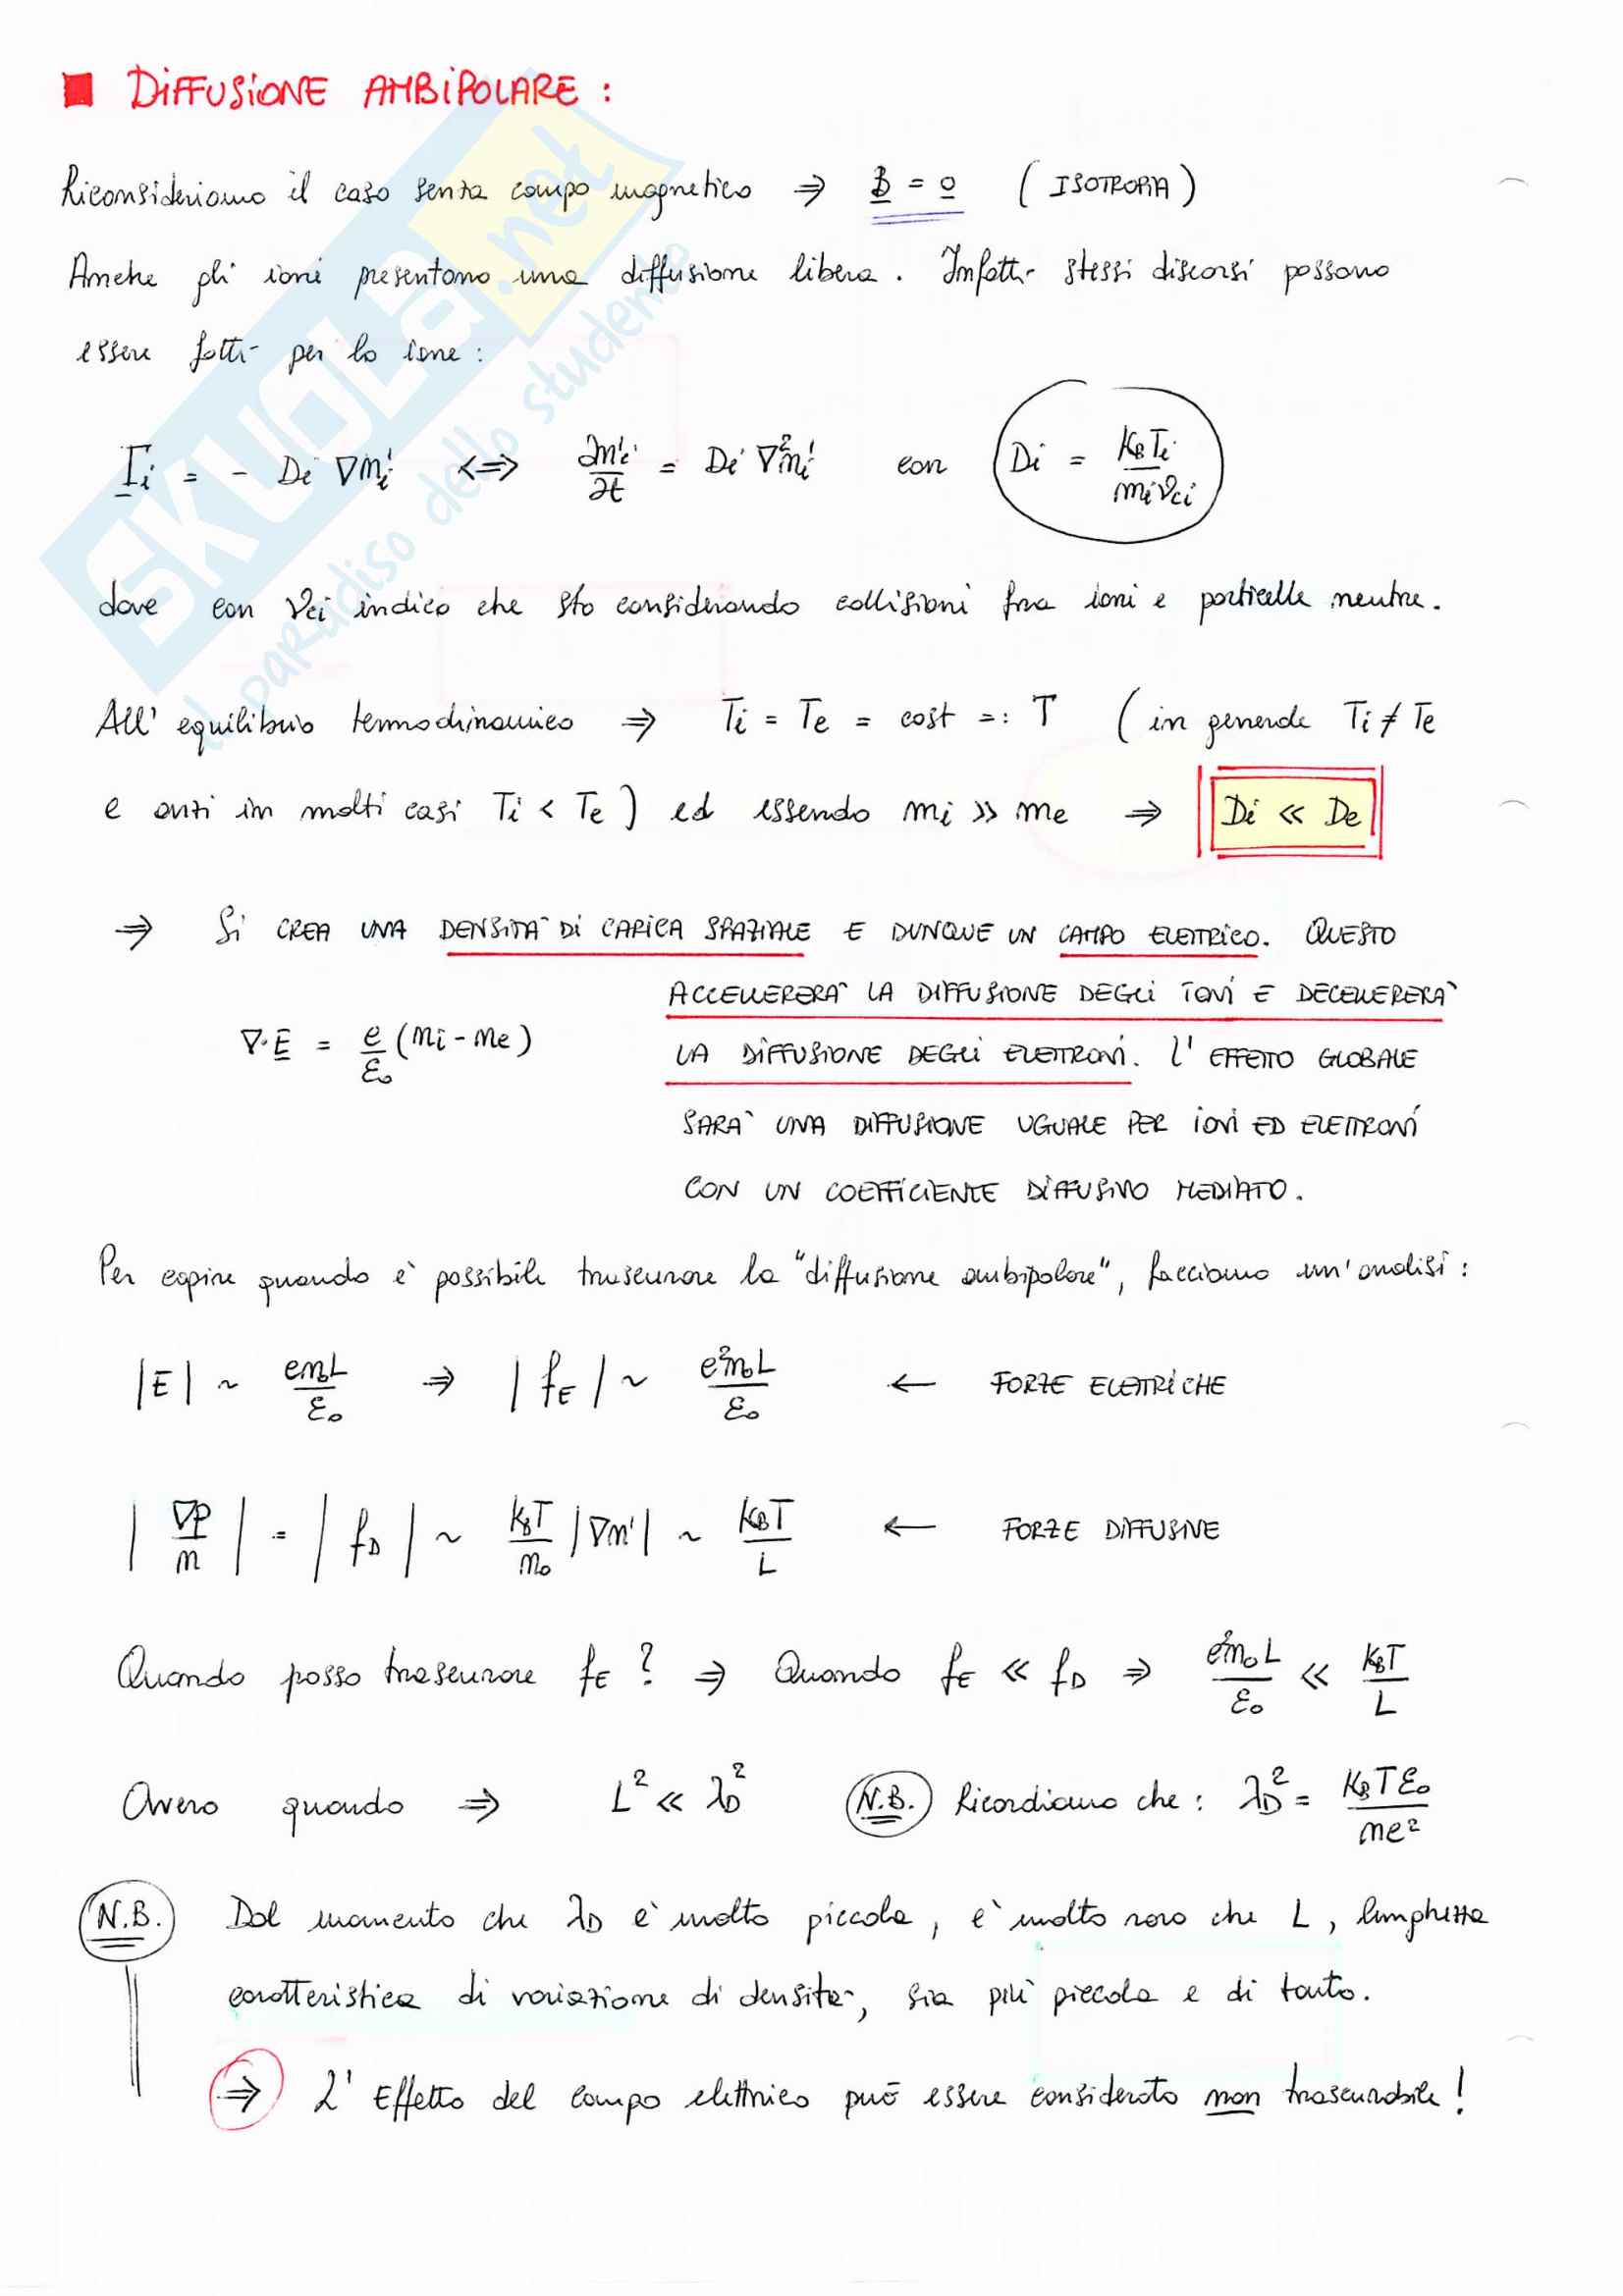 ■ DIFFUSIONE AMBIPOLARE :
Riconsideriamo il caso senza campo magnetico ⇒ B = 0 ( ISOTROPIA )
Anche gli ioni presentano una diffusione libera . Infatti stessi discorsi possono
essere fatti per lo ione :
Γi = - Di ∇ni' <=> ∂ni'/∂t = Di ∇²ni' con Di = KBTi/miνci
dove con νci indico che sto considerando collisioni fra ioni e particelle neutre.
All' equilibrio termodinamico ⇒ Ti = Te = cost =: T ( in generale Ti ≠ Te
e anzi in molti casi Ti < Te ) ed essendo mi >> me ⇒ Di << De
⇒ SI CREA UNA DENSITA' DI CARICA SPAZIALE E DUNQUE UN CAMPO ELETTRICO. QUESTO
ACCELLERERA' LA DIFFUSIONE DEGLI IONI E DECELLERERA'
∇·E = e/ε0 (ni - ne)
LA DIFFUSIONE DEGLI ELETTRONI. L' EFFETTO GLOBALE
SARA' UNA DIFFUSIONE UGUALE PER IONI ED ELETTRONI
CON UN COEFFICIENTE DIFFUSIVO MEDIATO.
Per capire quando è possibile trascurare la "diffusione ambipolare", facciamo un'analisi :
|E| ~ en0L/ε0 ⇒ |fE| ~ e²n0L/ε0 ← FORZE ELETTRICHE
|∇P/n| = |fD| ~ KBT/n0 |∇n'| ~ KBT/L ← FORZE DIFFUSIVE
Quando posso trascurare fE ? ⇒ Quando fE << fD ⇒ e²n0L/ε0 << KBT/L
Ovvero quando ⇒ L² << λD² N.B. Ricordiamo che : λD² = KBTε0/ne²
N.B. Dal momento che λD è molto piccola, è molto raro che L, lunghezza
caratteristica di variazione di densità, sia più piccola e di tanto.
⇒ L' Effetto del campo elettrico può essere considerato non trascurabile !
SKUOLA.net
il paradiso dello studente